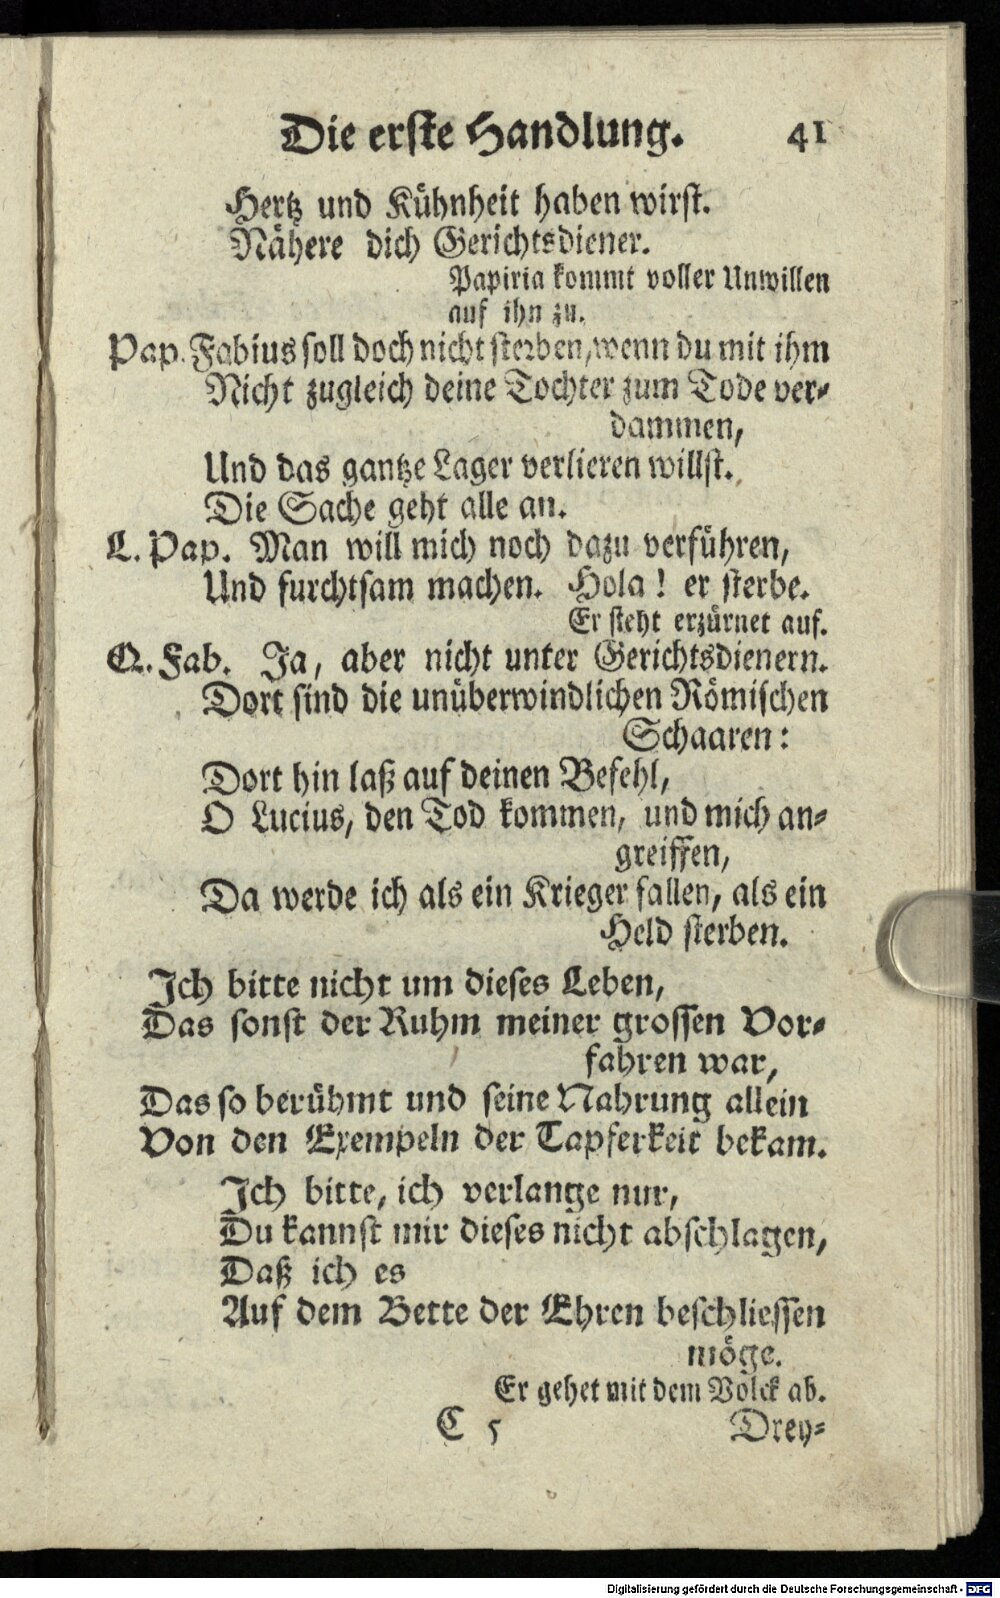 Die erste Handlung. 41
Hertz und Kühnheit haben wirst.
Nähere dich Gerichtsdiener.
Papiria kommt voller Unwillen
auf ihn zu.
Pap. Fabius soll doch nicht sterben, wenn du mit ihm
Nicht zugleich deine Tochter zum Tode ver-
dammen,
Und das gantze Lager verlieren willst.
Die Sache geht alle an.
L. Pap. Man will mich noch dazu verführen,
Und furchtsam machen. Hola! er sterbe.
Er steht erzürnet auf.
Q. Fab. Ja, aber nicht unter Gerichtsdienern.
Dort sind die unüberwindlichen Römischen
Schaaren:
Dort hin laß auf deinen Befehl,
O Lucius, den Tod kommen, und mich an-
greiffen,
Da werde ich als ein Krieger fallen, als ein
Held sterben.
Ich bitte nicht um dieses Leben,
Das sonst der Ruhm meiner grossen Vor-
fahren war,
Das so berühmt und seine Nahrung allein
Von den Exempeln der Tapferkeit bekam.
Ich bitte, ich verlange nur,
Du kannst mir dieses nicht abschlagen,
Daß ich es
Auf dem Bette der Ehren beschliessen
möge.
Er gehet mit dem Volck ab.
C 5 Drey-
Digitalisierung gefördert durch die Deutsche Forschungsgemeinschaft - DFG